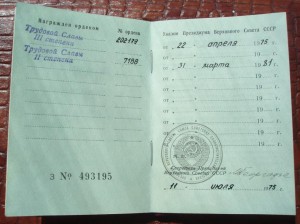 Награжден орденом
№ ордена
Трудовой Славы
III степени
202179
Трудовой Славы
II степени
7199
Э № 493195
Указом Президиума Верховного Совета СССР
от „ 22 “ апреля 1975 г.
от „ 31 “ марта 1981 г.
от „ “ 19 г.
от „ “ 19 г.
от „ “ 19 г.
от „ “ 19 г.
от „ “ 19 г.
от „ “ 19 г.
М. П.
Секретарь Президиума
Верховного Совета СССР
„ 11 “ июля 1975 г.